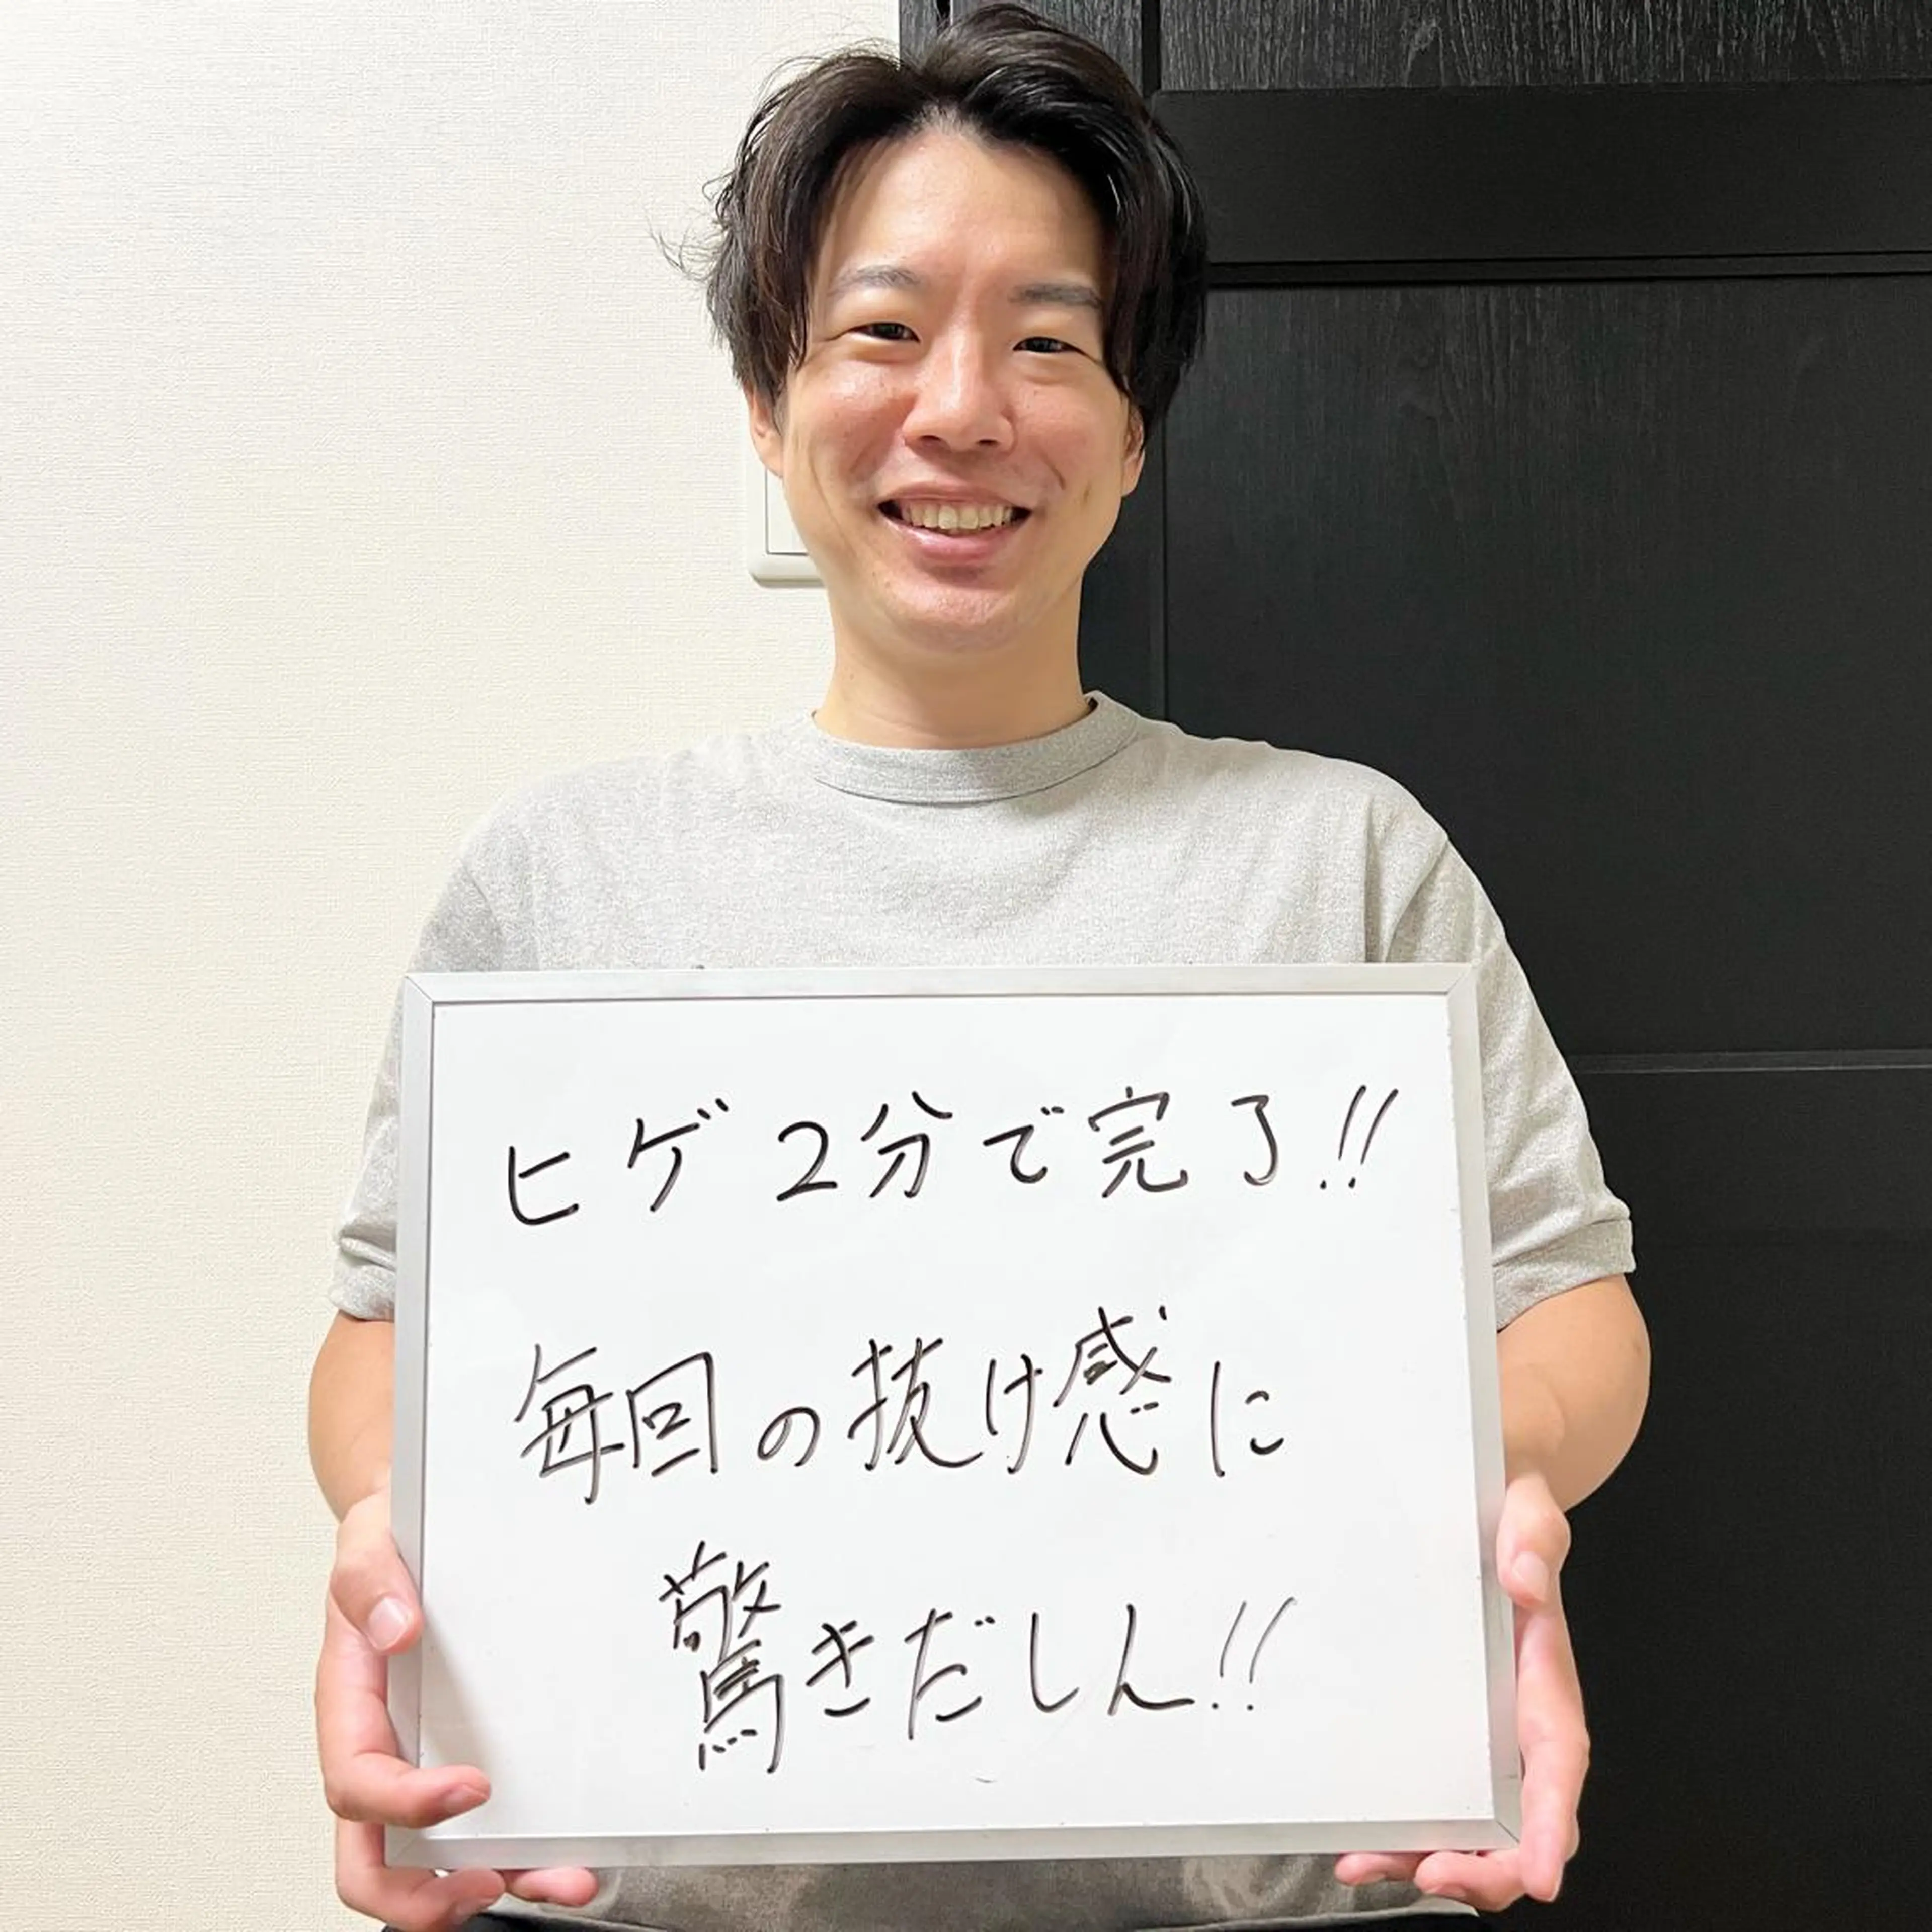 ヒゲ2分で完了!!
毎回の抜け感に
驚きだしん!!